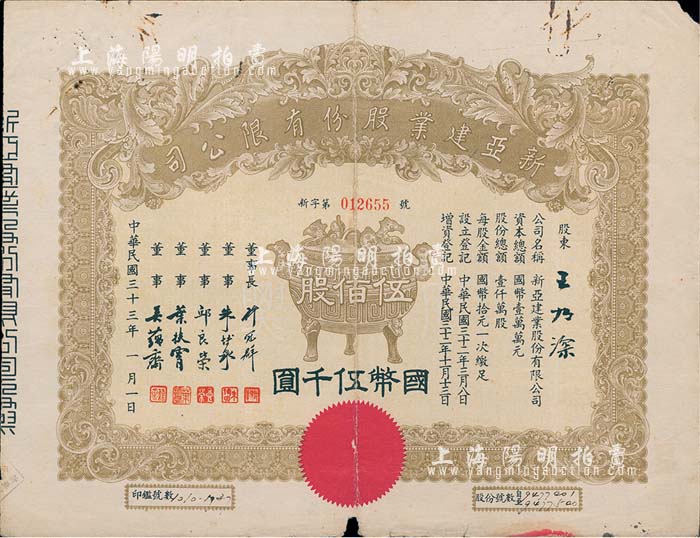 上海陽明拍賣
www.yangmingauction.com
新亞建業股份有限公司
新字第 012655 號
股東 王乃深
公司名稱 新亞建業股份有限公司
資本總額 國幣壹萬萬元
股份總額 壹仟萬股
每股金額 國幣拾元一次繳足
設立登記 中華民國三十二年三月八日
增資登記 中華民國三十二年十月十三日
伍佰股
國幣伍千圓
董事長 許冠群
董事
董事 邱良榮
董事 葉扶霄
董事 吳蘊齋
中華民國三十三年 一月一日
上海陽明拍賣
www.yangmingauction.com
印鑑號數
股份號數自至
上海陽明拍賣
www.yangmingauction.com